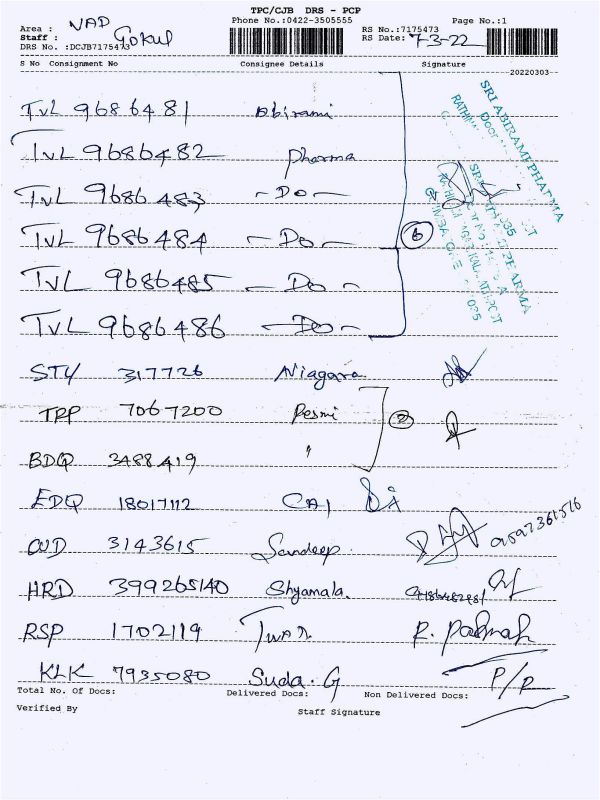 TPC/CJB DRS - PCP
Area : NAD Phone No.:0422-3505555 Page No.:1
Staff : Gokul RS No.:7175473
DRS No. :DCJB7175473 RS Date: 7-3-22
S No Consignment No Consignee Details Signature
20220303
TVL 9686481 Abirami
TVL 9686482 pharma
TVL 9686483 -Do-
TVL 9686484 -Do- 6
TVL 9686485 -Do-
TVL 9686486 -Do-
SRI ABIRAMI PHARMA
STY 317726 Niagara
TRP 7067200 2
BDQ 3488419 "
EDQ 18017112 CAI
3143615 Sandeep
HRD 399265140 Shyamala.
RSP 1702119 R.
KLK 7935080 Suda. G P/P
Total No. Of Docs: Delivered Docs: Non Delivered Docs:
Verified By Staff Signature